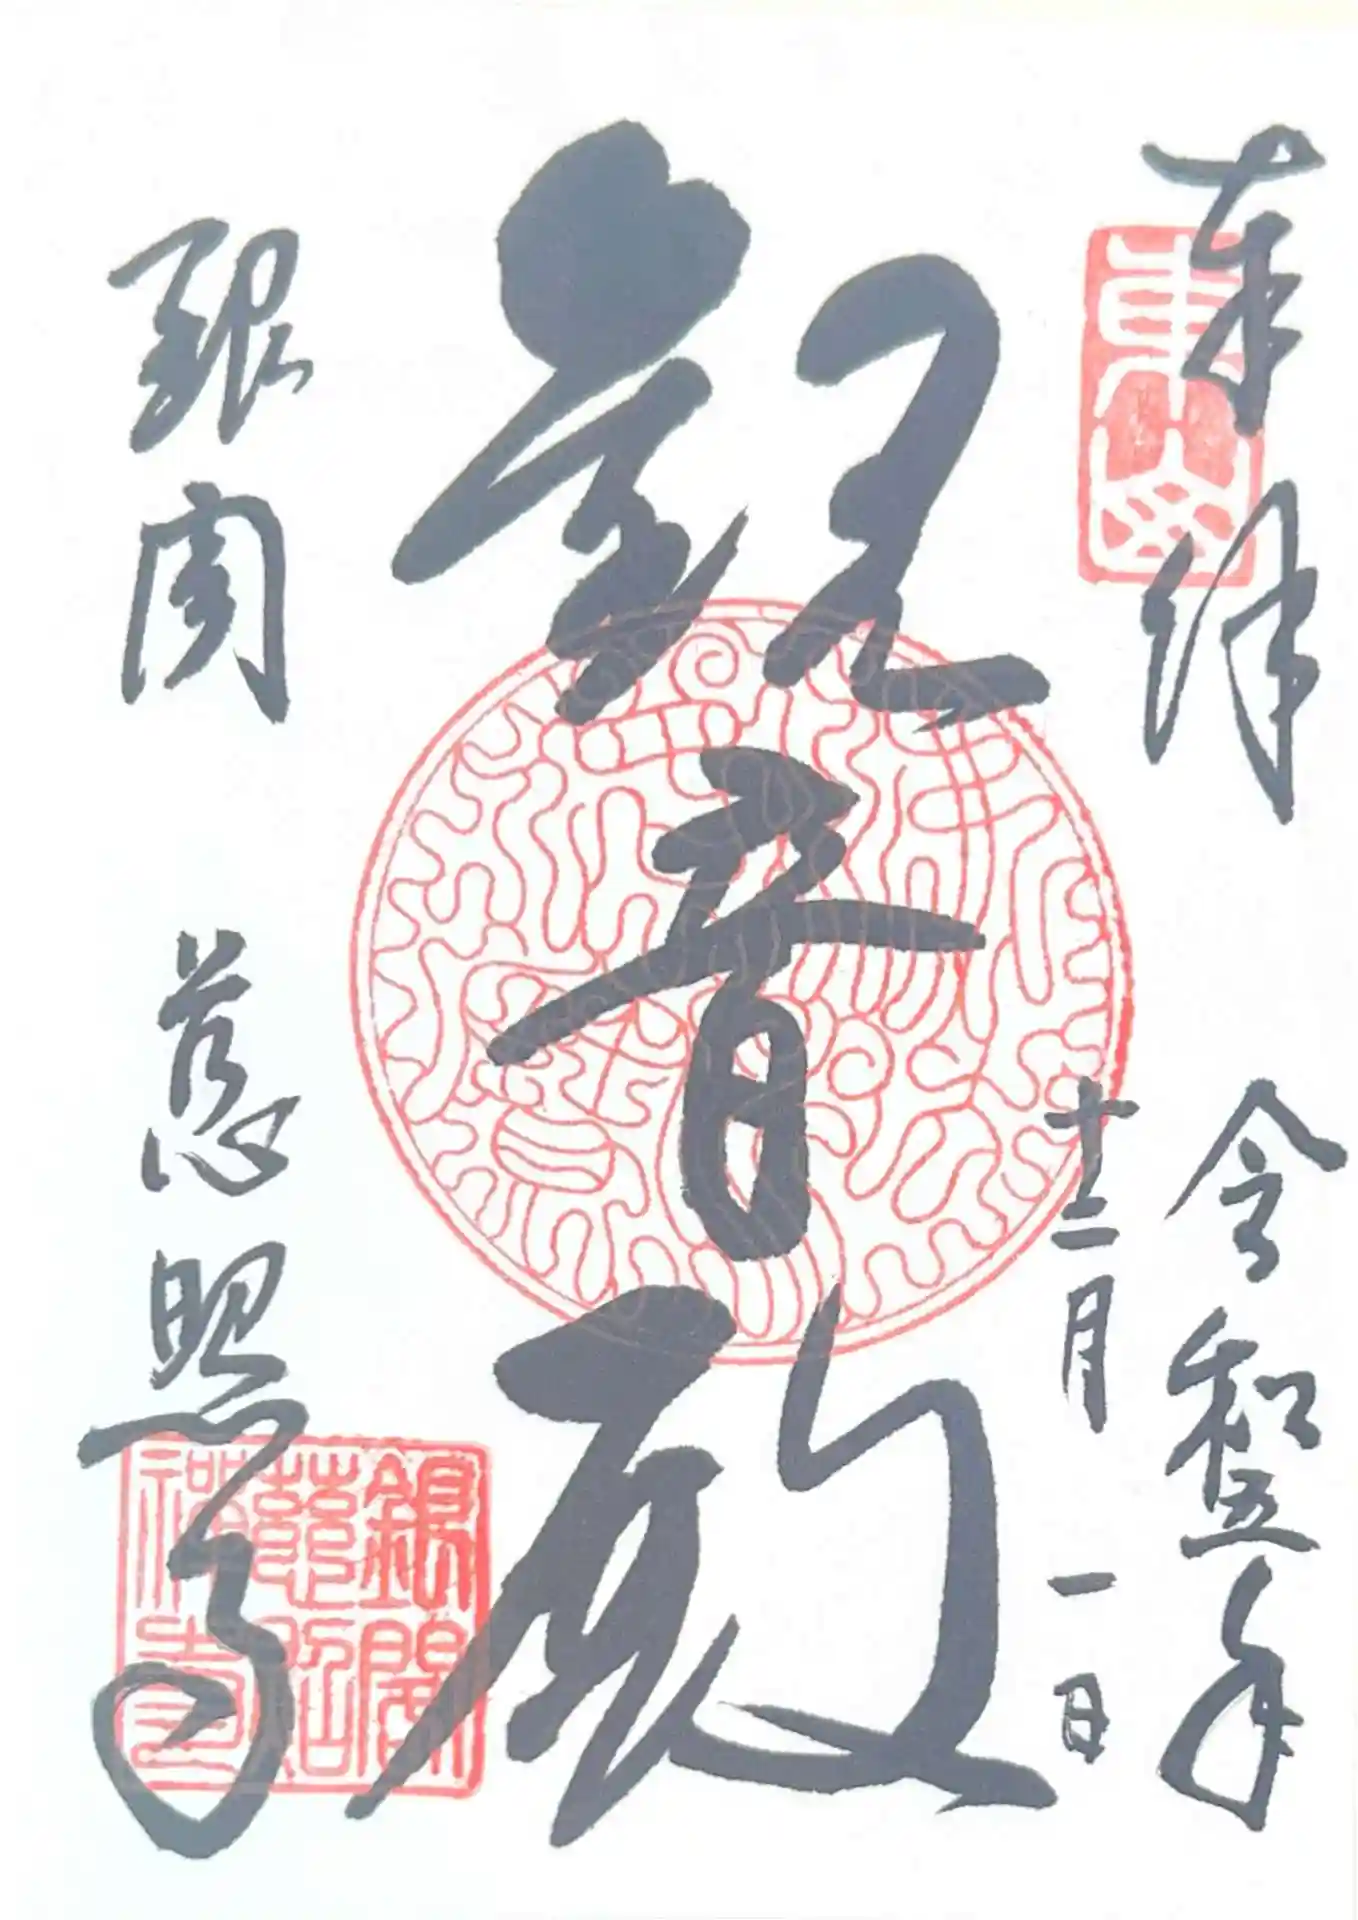 奉拝
東山
令和五年
十二月一日
観音殿
銀閣 慈照寺
銀閣
慈照
禅寺